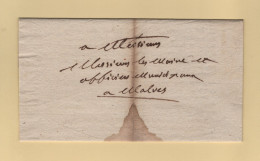 a Messieurs
Messieurs les Maire et
officiers Municipaux
a Malves